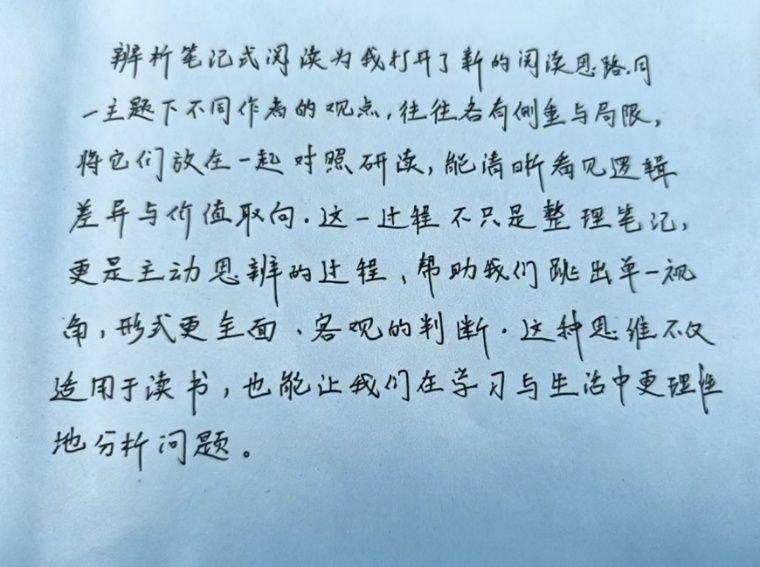 辨析笔记式阅读为我打开了新的阅读思路.同
一主题下不同作者的观点,往往各有侧重与局限,
将它们放在一起对照研读,能清晰看见逻辑
差异与价值取向.这一过程不只是整理笔记,
更是主动思辨的过程,帮助我们跳出单一视
角,形式更全面、客观的判断.这种思维不仅
适用于读书,也能让我们在学习与生活中更理性
地分析问题。